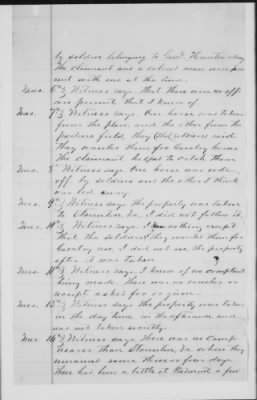 by soldiers belonging to Genl. Hunter's army
The claimant and a colored man were pre
sent with me at the time.
Ques. 6th} Witness says. That there were no offi
cers present that I know of.
Ques. 7th} Witness says. One horse was taken
from the plow, and the other from the
pasture field, they (the soldiers) said
they wanted them for Cavalry horses
The claimant helped to catch them
Ques. 8" Witness says One horse was rode
off by soldiers and the other I think
was led away.
Ques. 9th} Witness says the property was taken
to Staunton, Va, I did not follow it.
Ques. 10th} Witness says. Know nothing except
that the soldiers said they wanted them for
Cavalry use, I did not see the property
after it was taken
Ques. 11th} Witness says, I know of no complaint
being made. There was no voucher or
receipt asked for or given.
Ques. 13th} Witness says. The property was taken
in the day time, in the afternoon and
was not taken secretly.
Ques. 14th} Witness says there was no Camp
nearer than Staunton, Va, where they
remained some three or four days.
There had been a battle at Piedmont a few